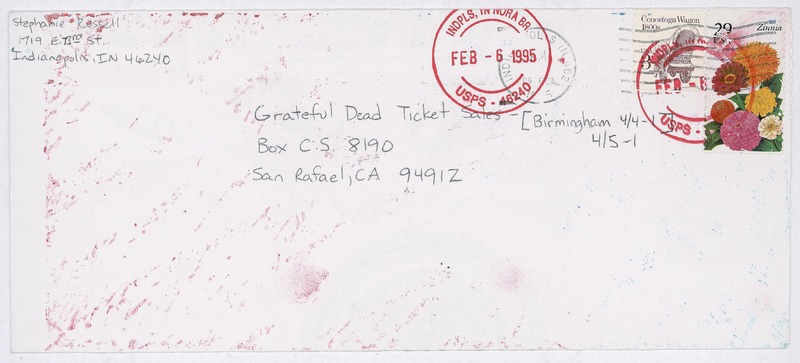 Stephanie Russell
1719 E. 73rd St.
Indianapolis, IN 46240
INDPLS, IN NORA BR.
FEB - 6 1995
USPS - 46240
Conestoga Wagon
1800s
29
USA
Zinnia
Grateful Dead Ticket Sales - [Birmingham 4/4-1
4/5-1
Box C.S. 8190
San Rafael, CA 94912